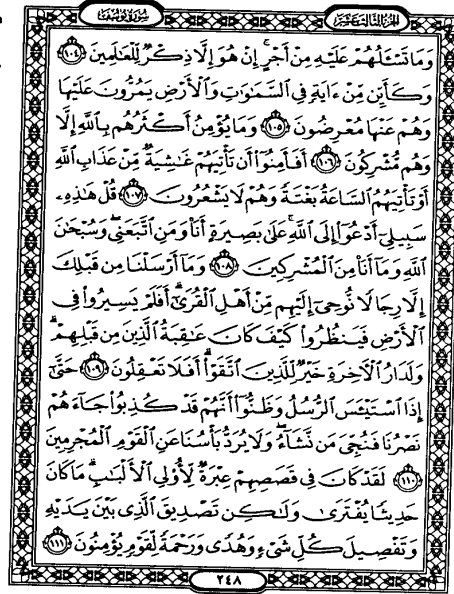 سُورَةُ يُوسُفَ الجُزءُ الثَّالِثَ عَشَرَ
وَمَا تَسْـَٔلُهُمْ عَلَيْهِ مِنْ أَجْرٍ ۚ إِنْ هُوَ إِلَّا ذِكْرٌ لِّلْعَـٰلَمِينَ ١٠٤
وَكَأَيِّن مِّنْ ءَايَةٍ فِى ٱلسَّمَـٰوَٰتِ وَٱلْأَرْضِ يَمُرُّونَ عَلَيْهَا
وَهُمْ عَنْهَا مُعْرِضُونَ ١٠٥ وَمَا يُؤْمِنُ أَكْثَرُهُم بِٱللَّهِ إِلَّا
وَهُم مُّشْرِكُونَ ١٠٦ أَفَأَمِنُوٓا۟ أَن تَأْتِيَهُمْ غَـٰشِيَةٌ مِّنْ عَذَابِ ٱللَّهِ
أَوْ تَأْتِيَهُمُ ٱلسَّاعَةُ بَغْتَةً وَهُمْ لَا يَشْعُرُونَ ١٠٧ قُلْ هَـٰذِهِۦ
سَبِيلِىٓ أَدْعُوٓا۟ إِلَى ٱللَّهِ ۚ عَلَىٰ بَصِيرَةٍ أَنَا۠ وَمَنِ ٱتَّبَعَنِى ۖ وَسُبْحَـٰنَ
ٱللَّهِ وَمَآ أَنَا۠ مِنَ ٱلْمُشْرِكِينَ ١٠٨ وَمَآ أَرْسَلْنَا مِن قَبْلِكَ
إِلَّا رِجَالًا نُّوحِىٓ إِلَيْهِم مِّنْ أَهْلِ ٱلْقُرَىٰٓ ۗ أَفَلَمْ يَسِيرُوا۟ فِى
ٱلْأَرْضِ فَيَنظُرُوا۟ كَيْفَ كَانَ عَـٰقِبَةُ ٱلَّذِينَ مِن قَبْلِهِمْ ۗ
وَلَدَارُ ٱلْـَٔاخِرَةِ خَيْرٌ لِّلَّذِينَ ٱتَّقَوْا۟ ۗ أَفَلَا تَعْقِلُونَ ١٠٩ حَتَّىٰٓ
إِذَا ٱسْتَيْـَٔسَ ٱلرُّسُلُ وَظَنُّوٓا۟ أَنَّهُمْ قَدْ كُذِبُوا۟ جَآءَهُمْ
نَصْرُنَا فَنُجِّىَ مَن نَّشَآءُ ۖ وَلَا يُرَدُّ بَأْسُنَا عَنِ ٱلْقَوْمِ ٱلْمُجْرِمِينَ
١١٠ لَقَدْ كَانَ فِى قَصَصِهِمْ عِبْرَةٌ لِّأُو۟لِى ٱلْأَلْبَـٰبِ ۗ مَا كَانَ
حَدِيثًا يُفْتَرَىٰ وَلَـٰكِن تَصْدِيقَ ٱلَّذِى بَيْنَ يَدَيْهِ
وَتَفْصِيلَ كُلِّ شَىْءٍ وَهُدًى وَرَحْمَةً لِّقَوْمٍ يُؤْمِنُونَ ١١١
٢٤٨